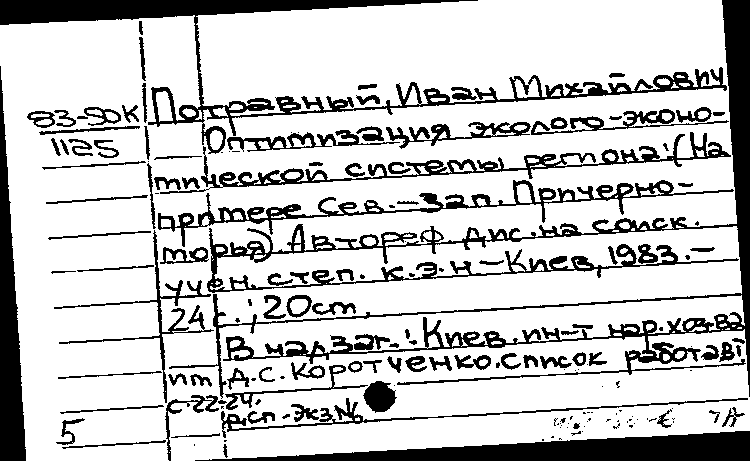 83-50К Потравный, Иван Михайлович
1125 Оптимизация эколого-эконо-
мической системы региона: (На
примере Сев.-Зап. Причерно-
морья). Автореф. дис. на соиск.
учен. степ. к.э.н - Киев, 1983. -
24 с.; 20 cm.
В надзаг.: Киев. ин-т нар. хоз-ва
им Д.С. Коротченко. Список работ авт
с. 22-24.
Д.сп. - экз.№
5